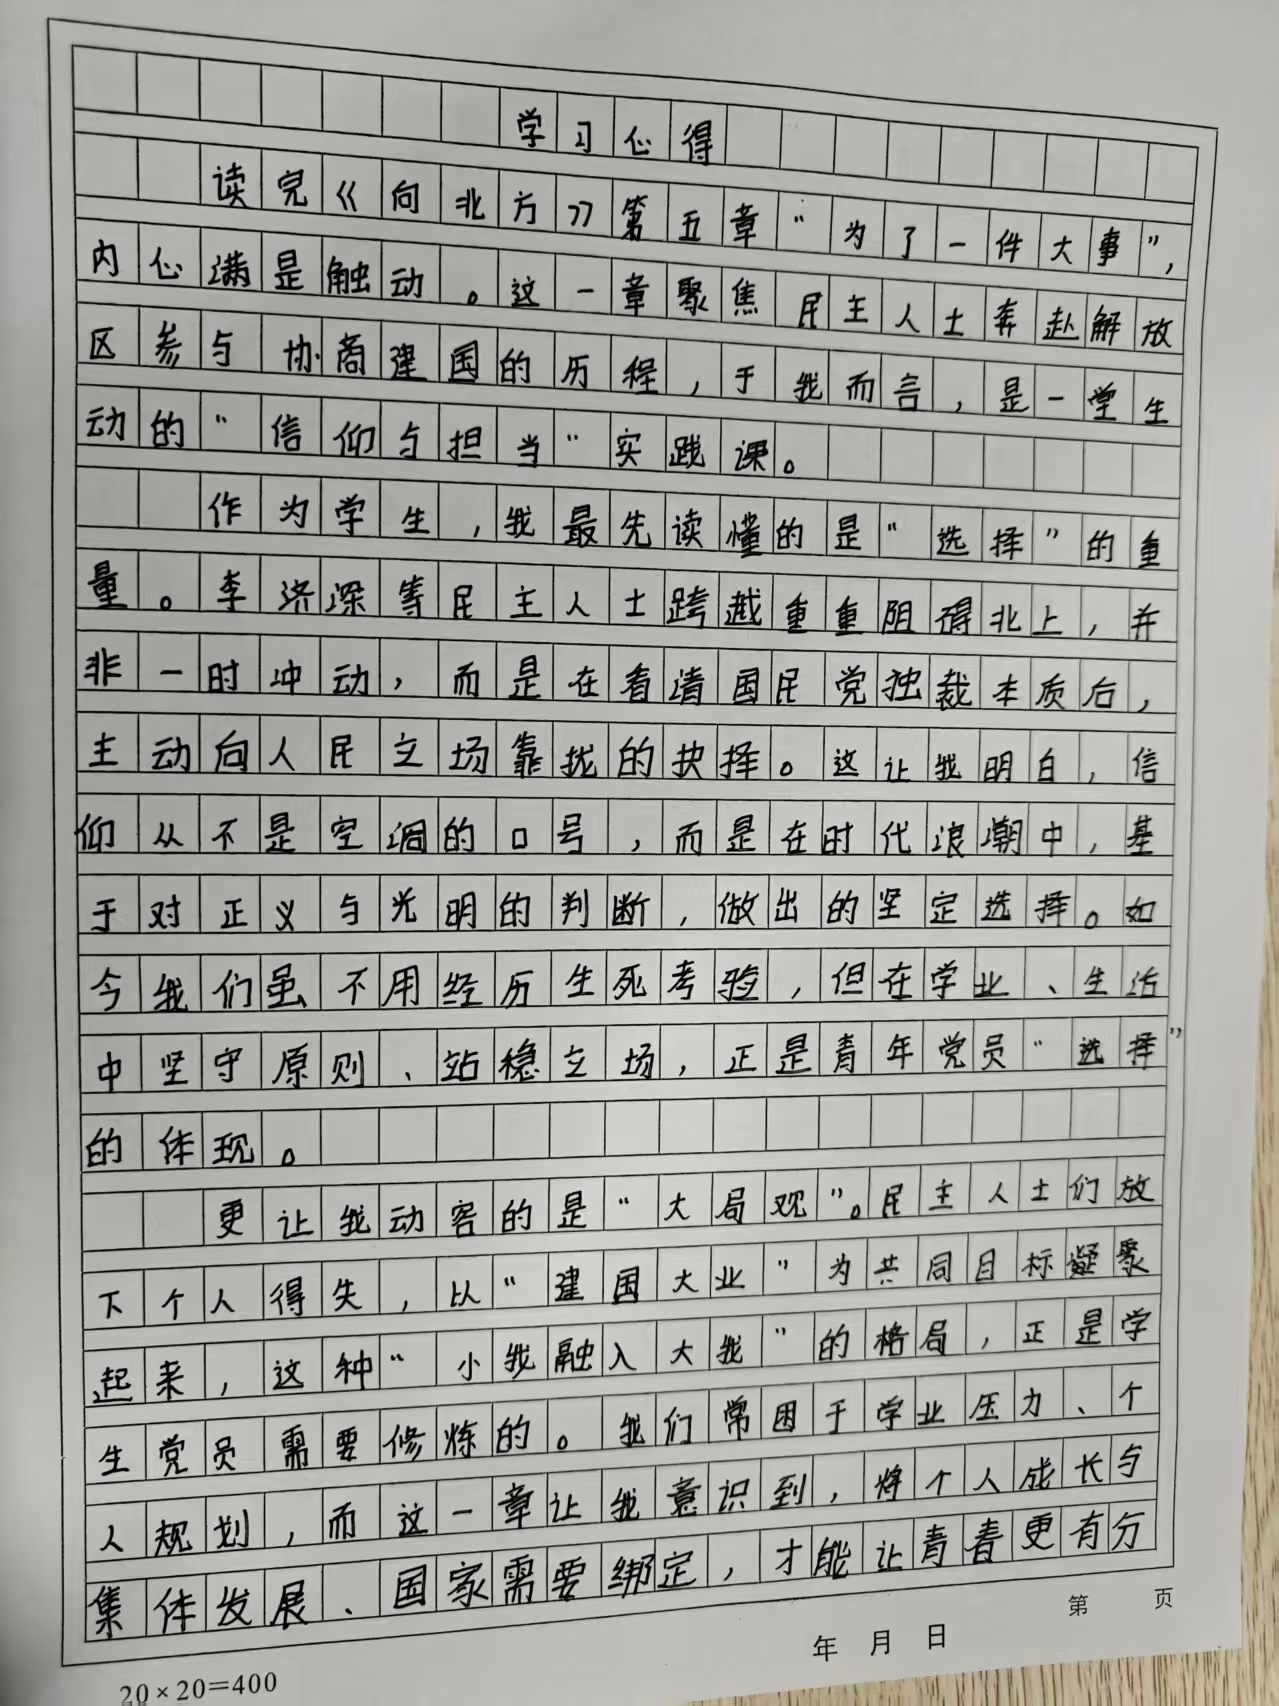 学习心得
读完《向北方》第五章“为了一件大事”，
内心满是触动。这一章聚焦民主人士奔赴解放
区参与协商建国的历程，于我而言，是一堂生
动的“信仰与担当”实践课。
作为学生，我最先读懂的是“选择”的重
量。李济深等民主人士跨越重重阻碍北上，并
非一时冲动，而是在看清国民党独裁本质后，
主动向人民立场靠拢的抉择。这让我明白，信
仰从不是空洞的口号，而是在时代浪潮中，基
于对正义与光明的判断，做出的坚定选择。如
今我们虽不用经历生死考验，但在学业、生活
中坚守原则、站稳立场，正是青年党员“选择”
的体现。
更让我动容的是“大局观”。民主人士们放
下个人得失，以“建国大业”为共同目标凝聚
起来，这种“小我融入大我”的格局，正是学
生党员需要修炼的。我们常困于学业压力、个
人规划，而这一章让我意识到，将个人成长与
集体发展、国家需要绑定，才能让青春更有分
第 页
年 月 日
20×20=400